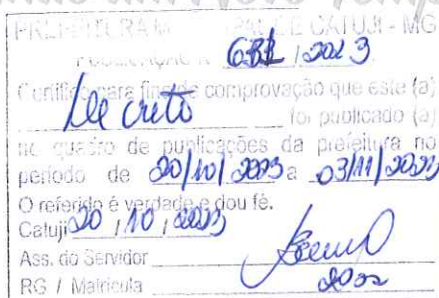 PREFEITURA MUNICIPAL DE CATUJI - MG
PUBLICAÇÃO N 631 / 2023
Certifico para fins de comprovação que este (a)
Decreto foi publicado (a)
no quadro de publicações da prefeitura no
período de 20/10/2023 a 03/11/2023
O referido é verdade e dou fé.
Catuji 20 / 10 / 2023
Ass. do Servidor
RG / Matrícula